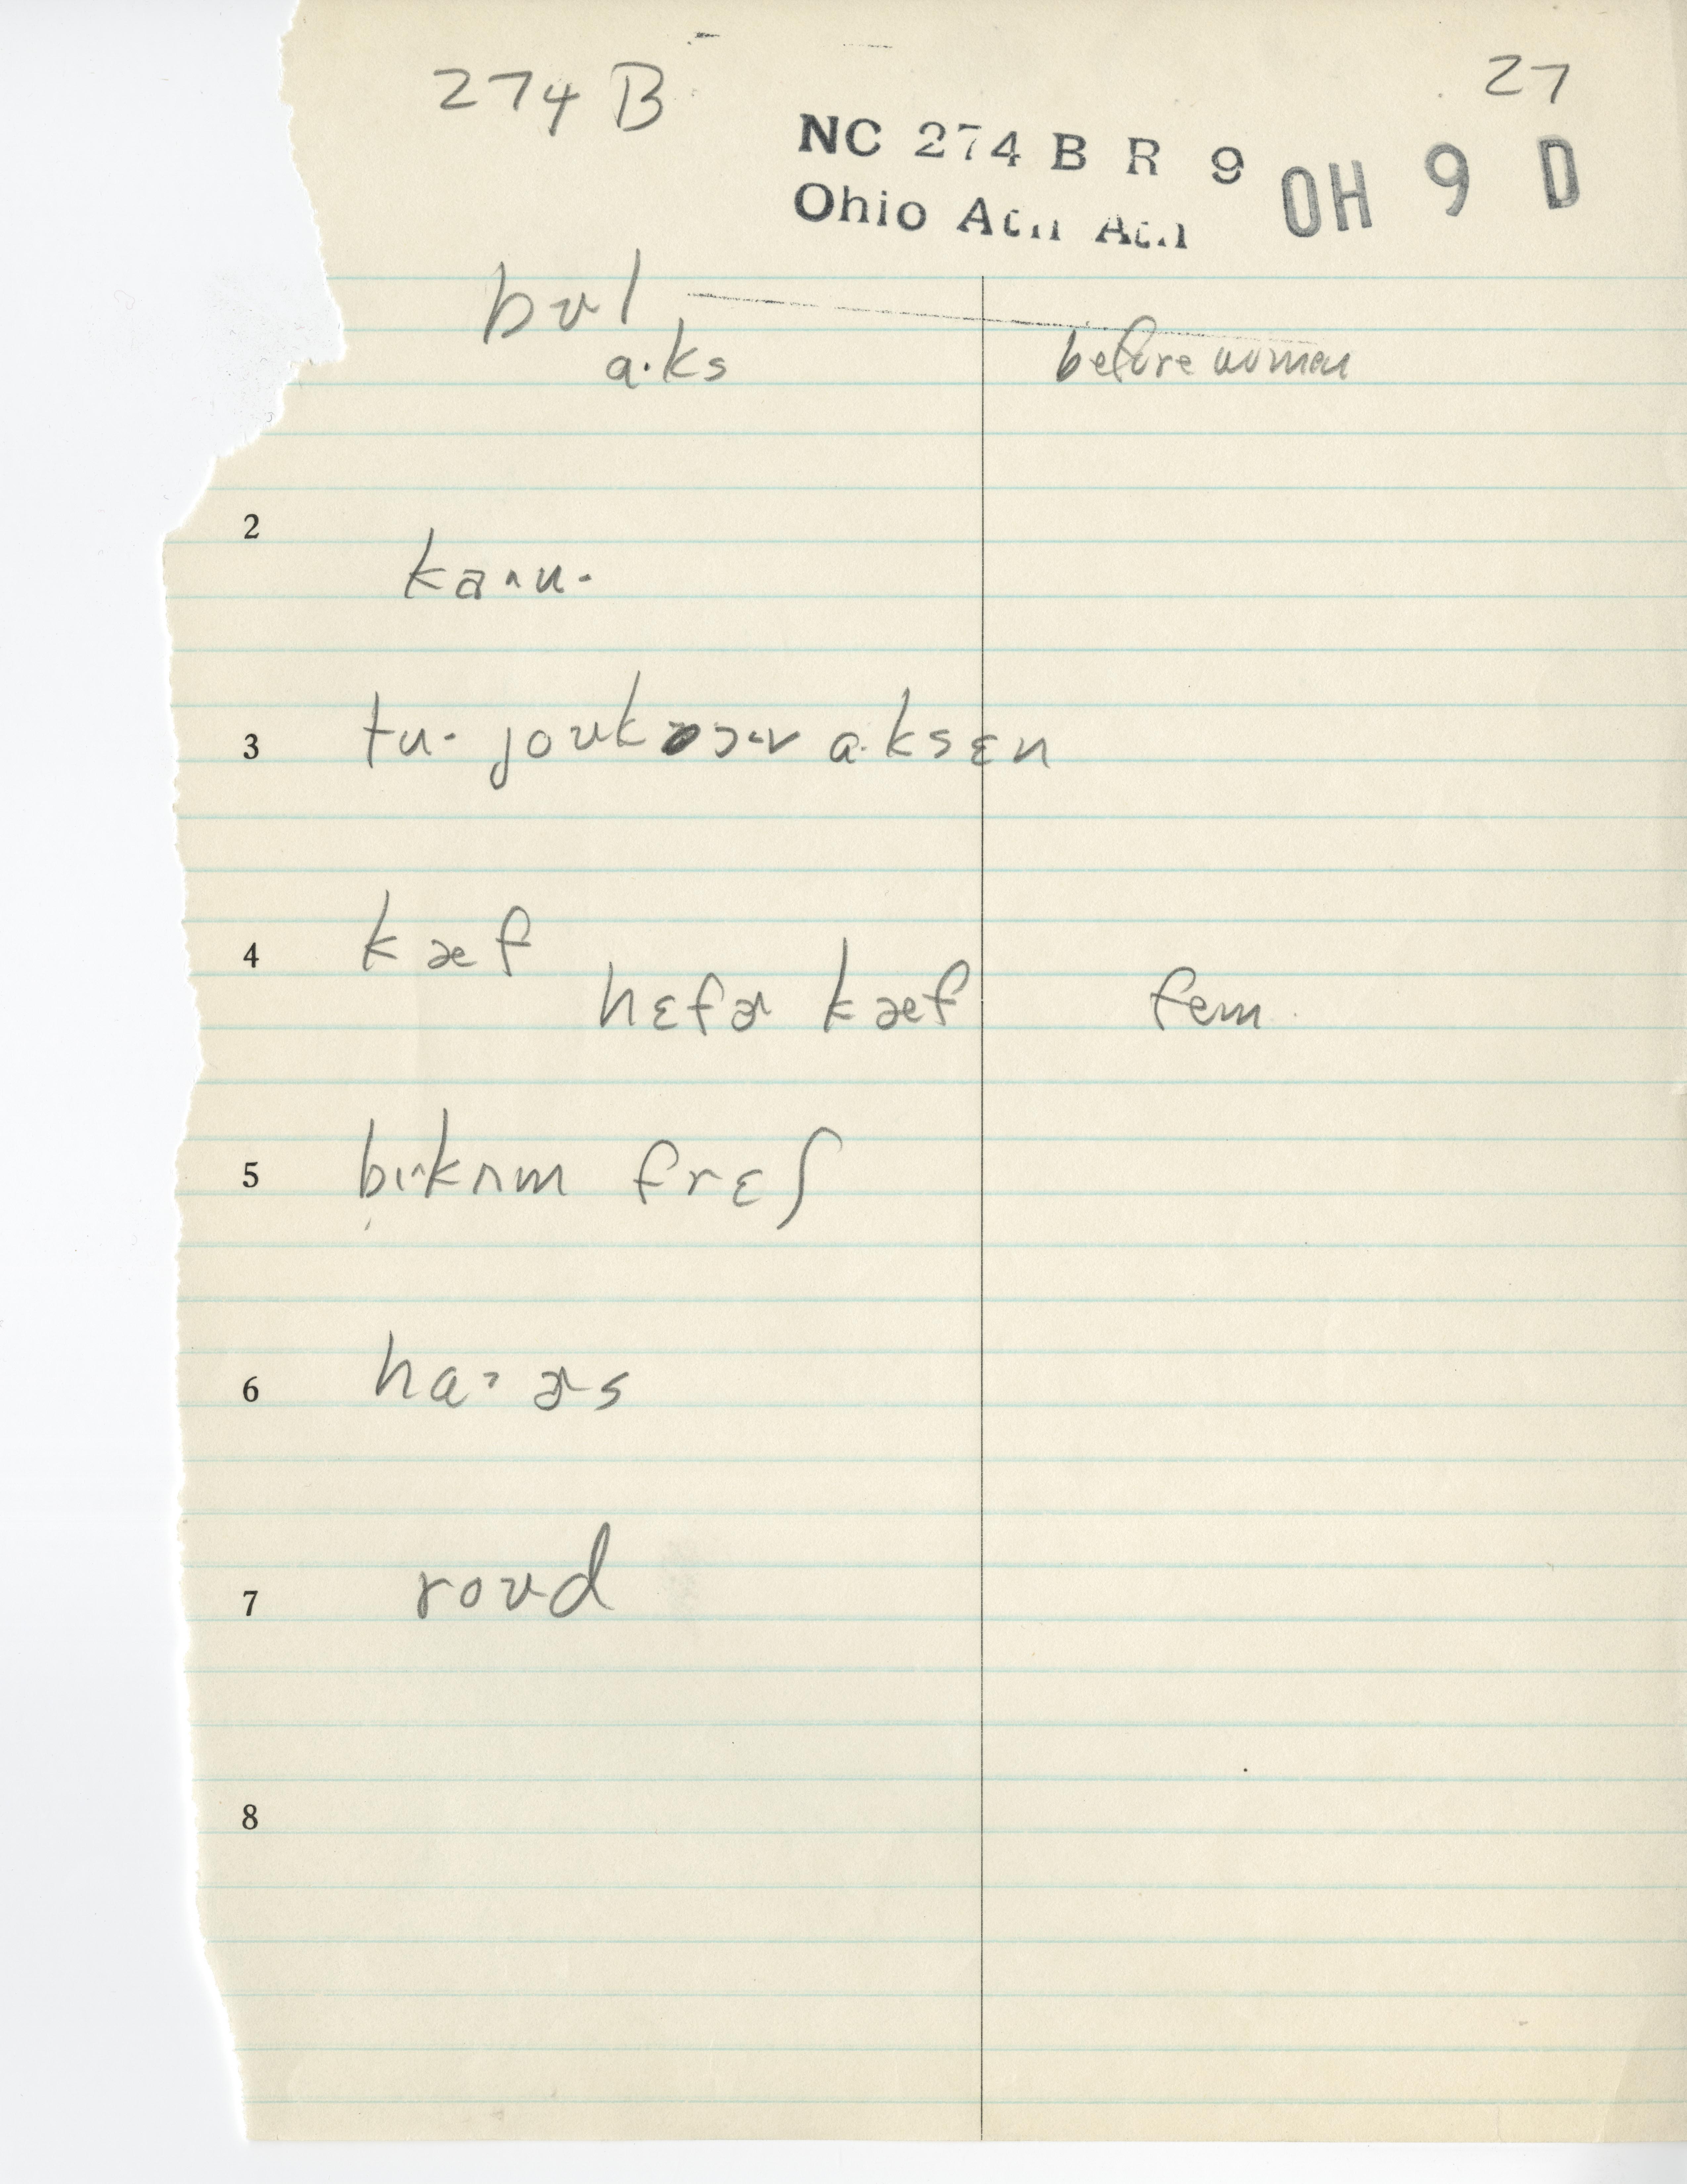 274 B 27
NC 274 B R 9 OH 9 D
Ohio
bʊl
ɑ·ks before women
2
kaᴧu·
3 tu· joʊk ɑ·ksɛn
4 kæf
hɛfɚ kæf fem
5 bɪ·kʌm frɛʃ
6 hɑ· ɚs
7 roʊd
8